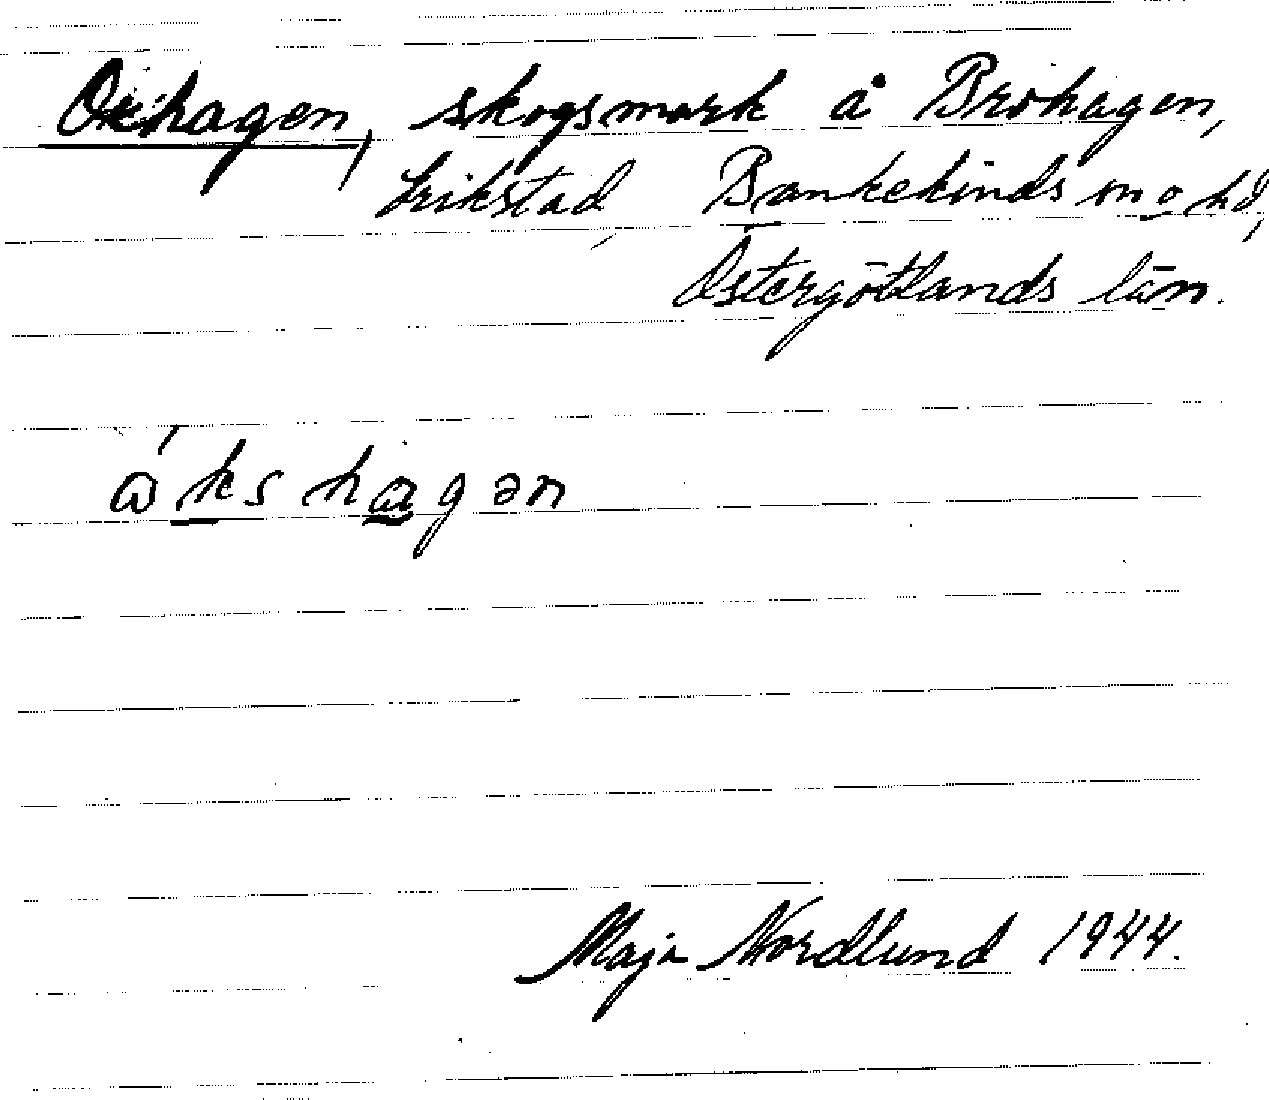 Oxhagen, skogsmark å Brohagen,
Erikstad, Bankekinds sn o hd,
Östergötlands län.
ɷ́ks hagən
Maja Nordlund 1944.